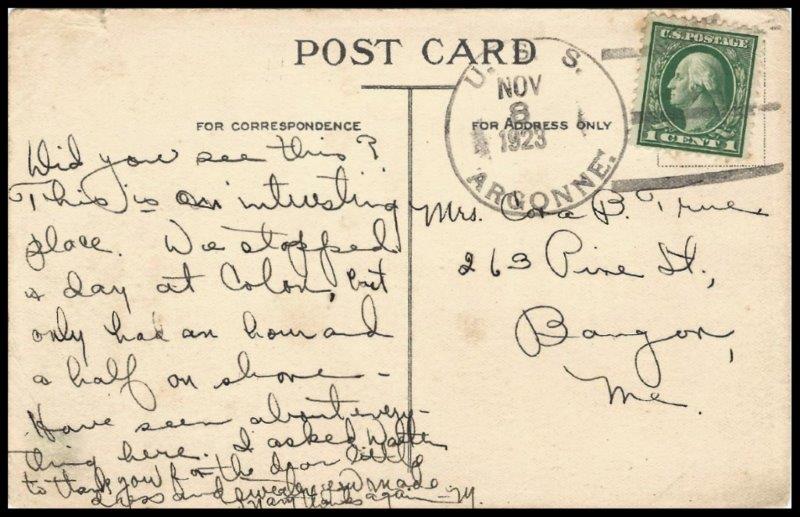 POST CARD
FOR CORRESPONDENCE
FOR ADDRESS ONLY
U.S.S.
NOV
8
1923
ARGONNE.
U.S. POSTAGE
1 CENT 1
Did you see this?
This is an interesting
place. We stopped
a day at Colon, but
only had an hour and
a half on shore –
Have seen about every-
thing here. I asked Walter
to thank you for the dear little
dress and you made
Many thanks again – M.
Mrs. Cora B. True
263 Pine St.,
Bangor,
Me.